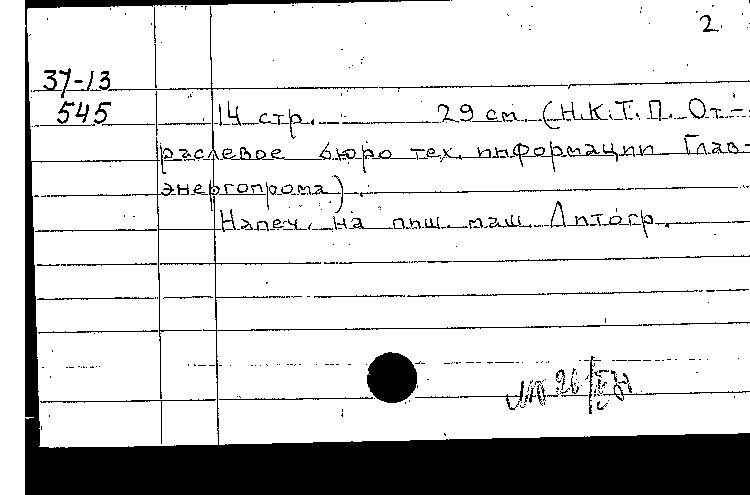 2
37-13
545
14 стр. 29 см (Н.К.Т.П. От-
раслевое бюро тех. информации Глав-
энергопрома).
Напеч. на пиш. маш. Литогр.